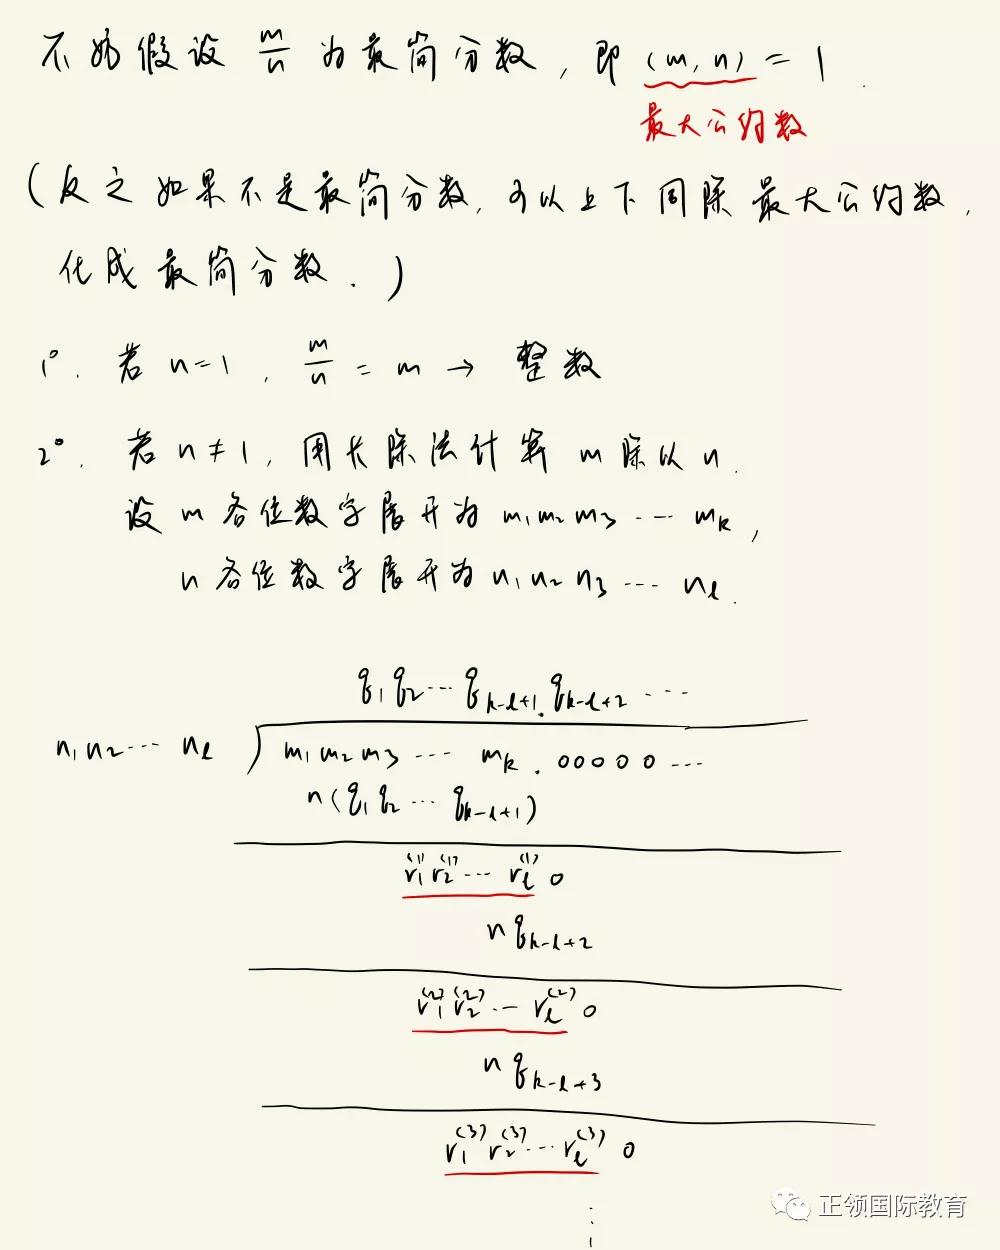 不妨假设 m/n 为最简分数, 即 (m, n) = 1.
最大公约数
(反之如果不是最简分数, 可以上下同除最大公约数,
化成最简分数.)
1°. 若 n=1, m/n = m → 整数
2°. 若 n≠1, 用长除法计算 m 除以 n.
设 m 各位数字展开为 m₁m₂m₃⋯mₖ,
n 各位数字展开为 n₁n₂n₃⋯nₗ.
q₁q₂⋯qₖ₋ₗ₊₁.qₖ₋ₗ₊₂⋯
n₁n₂⋯nₗ ) m₁m₂m₃⋯mₖ.00000⋯
n(q₁q₂⋯qₖ₋ₗ₊₁)
r₁⁽¹⁾r₂⁽¹⁾⋯rₗ⁽¹⁾0
nqₖ₋ₗ₊₂
r₁⁽²⁾r₂⁽²⁾⋯rₗ⁽²⁾0
nqₖ₋ₗ₊₃
r₁⁽³⁾r₂⁽³⁾⋯rₗ⁽³⁾0
⋮
正领国际教育